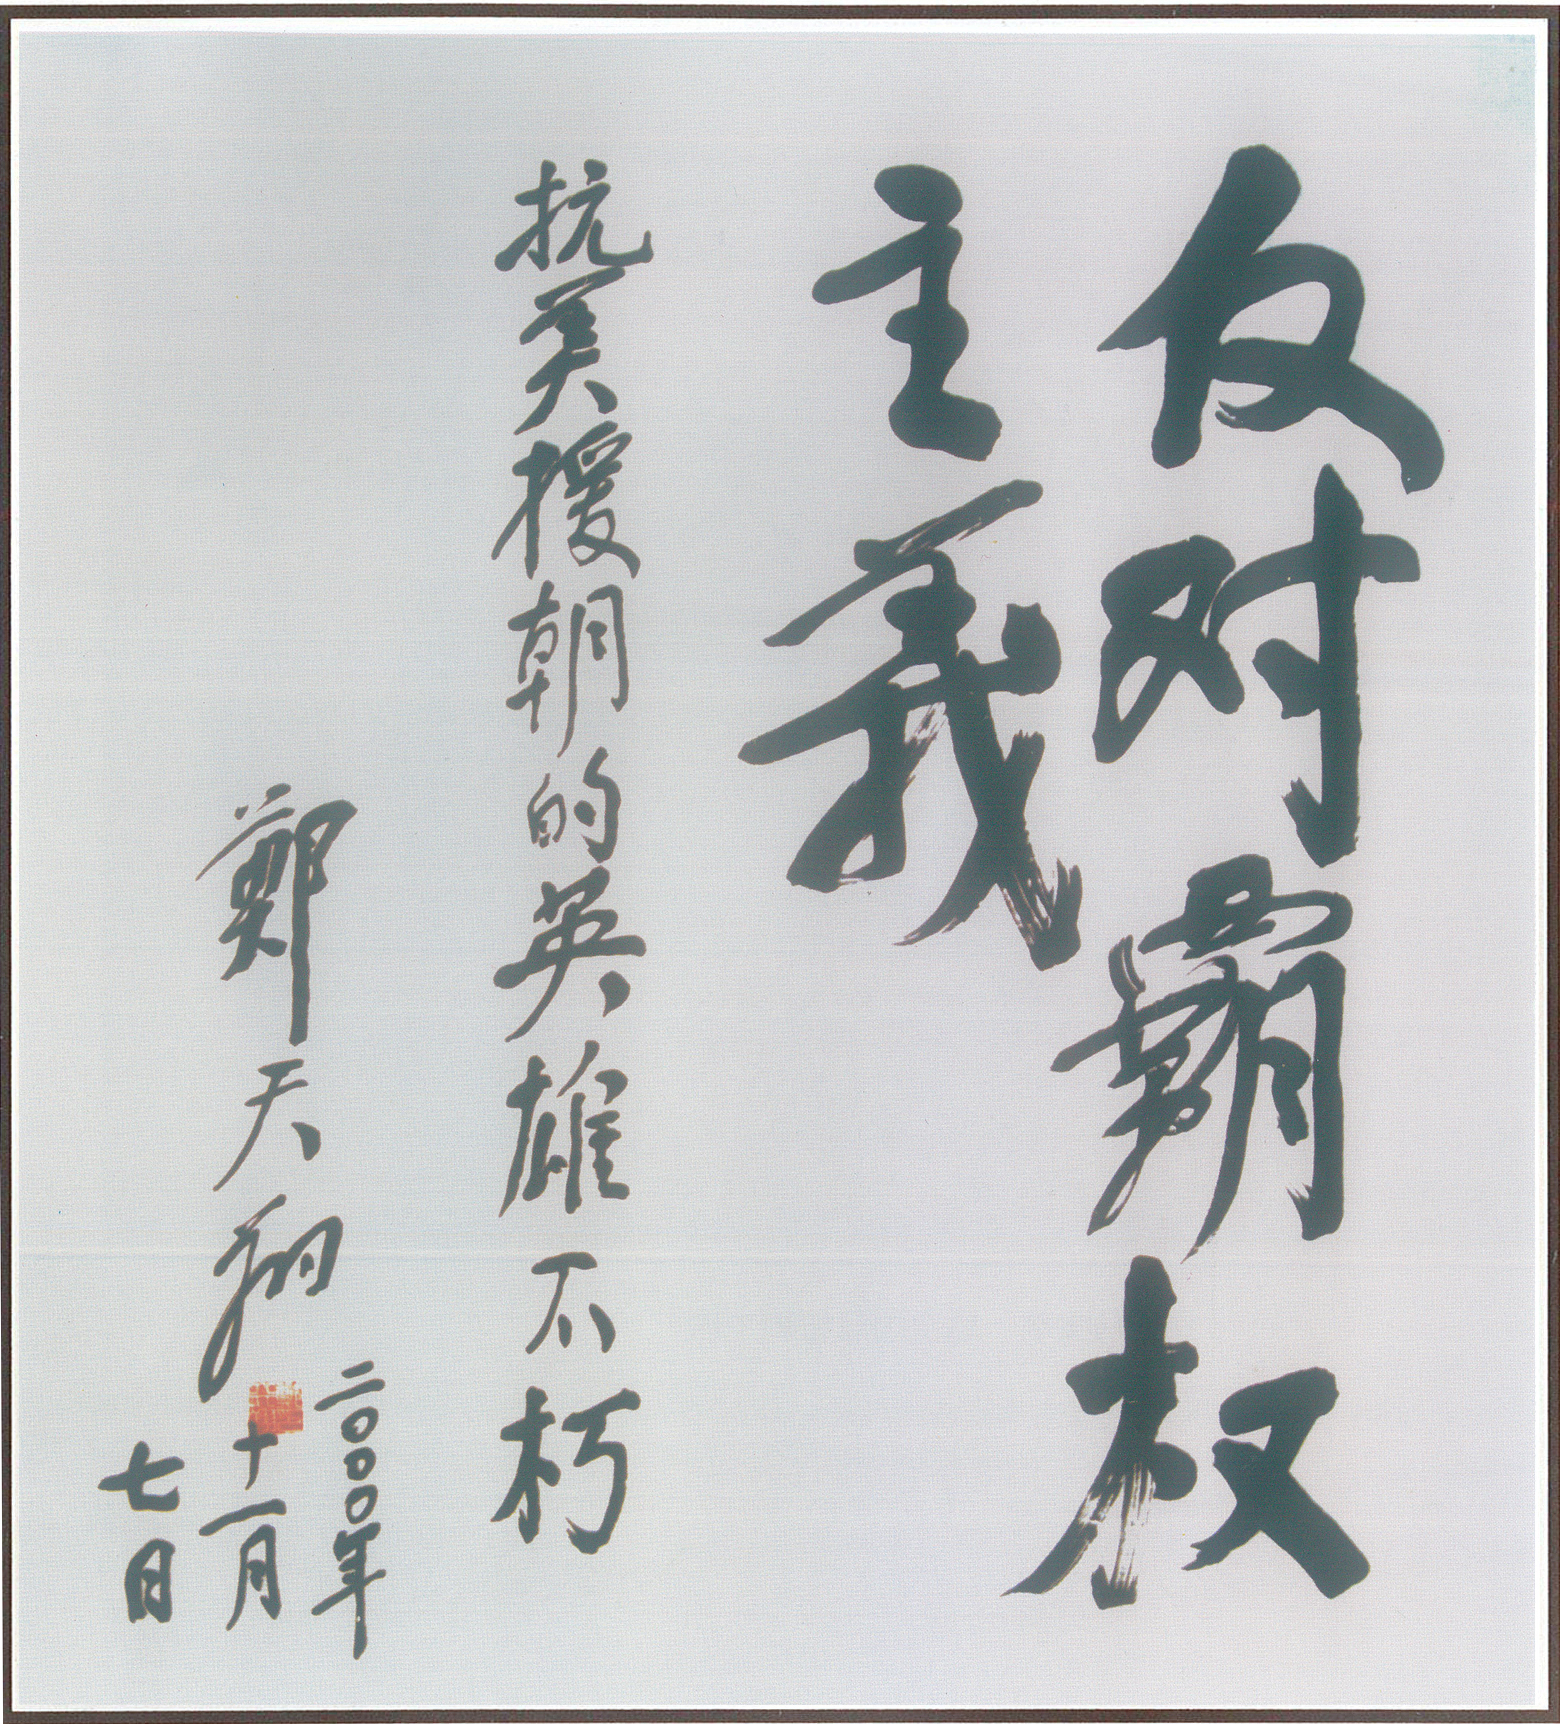 反对霸权
主義
抗美援朝的英雄不朽
鄭天翔
二〇〇〇年
十一月
七日